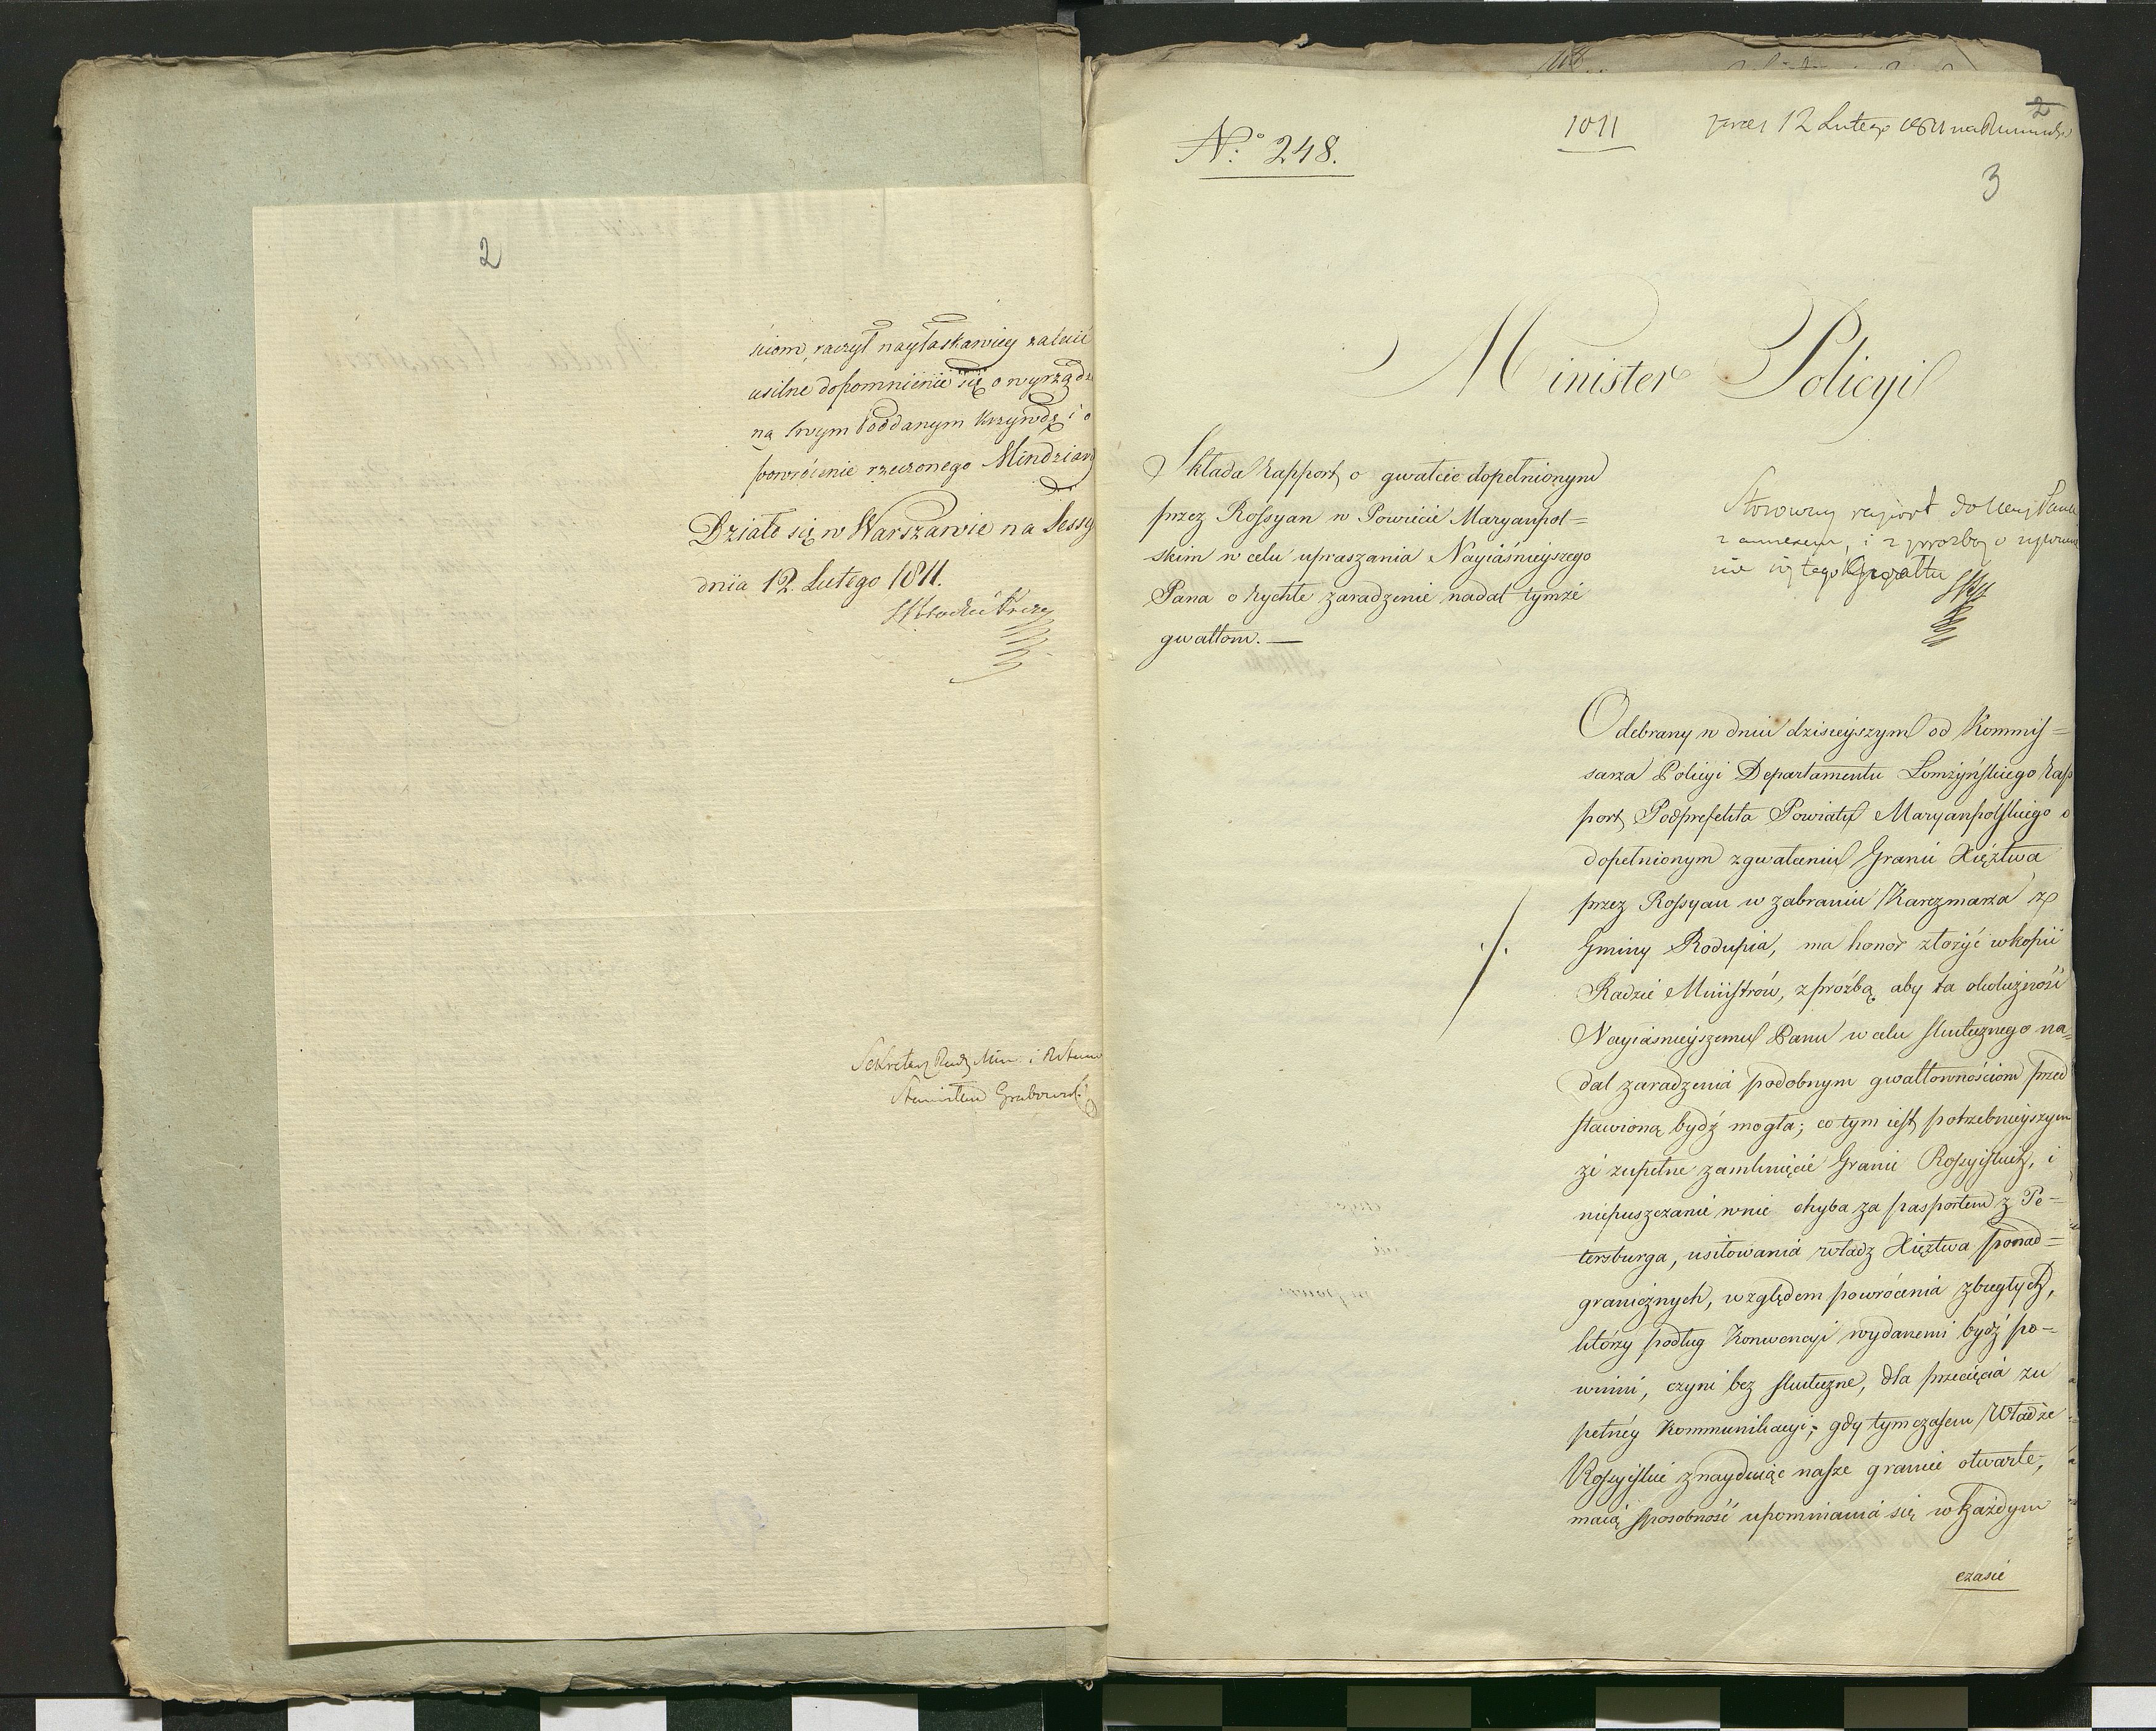 2
ściom, raczył nayłaskawiey zalecić
usilne dopomnienie się o wyrządz
ną swym Poddanym Krzywdę i o
powrócenie rzeczonego Mindziar
Działo się w Warszawie na Sessy
dnia 12. Lutego 1811.
Sekretarz Rady Min: i R Stanu
Stanisław Grabowski
2
No. 248.
1011
12 Lutego 1811
3
Minister Policyi
Składa Rapport o gwałcie dopełnionym
przez Rossyan w Powiecie Maryanpol=
skim w celu upraszania Nayiaśnieyszego
Pana o rychłe zaradzenie nadal tymże
gwałtom. —
Stosowny raport do Nayj Pana
z annexem, i z prozbą o
nie się tego Gwałtu
Odebrany w dniu dzisieyszym od Kommis=
sarza Policyi Departamentu Łomżyńskiego Rap
port Podprefekta Powiatu Maryanpolskiego o
dopełnionym zgwałceniu Granic Xięztwa
przez Rossyan w zabraniu Karczmarza z
Gminy Rodupia, ma honor złożyć w kopii
Radzie Ministrów, z prozbą aby ta okoliczność
Nayiaśnieyszemu Panu w celu skutecznego na=
dal zaradzenia podobnym gwałtownościom przed
stawioną bydź mogła; co tym iest potrzebnieyszym
że zupełne zamknięcie Granic Rossyiskich, i
niepuszczanie w nie chyba za pasportem z Pe=
tersburga, usiłowania władz Xięztwa ponad=
granicznych, względem powrócenia zbiegłych,
którzy podług Konwencyi wydanemi bydź po=
winni, czyni bez skuteczne, dla przecięcia zu
pełnéy Kommunikacyi; gdy tymczasem Władze
Rossyiskie znayduiąc nasze granice otwarte,
maią sposobność upominania się w każdym
czasie